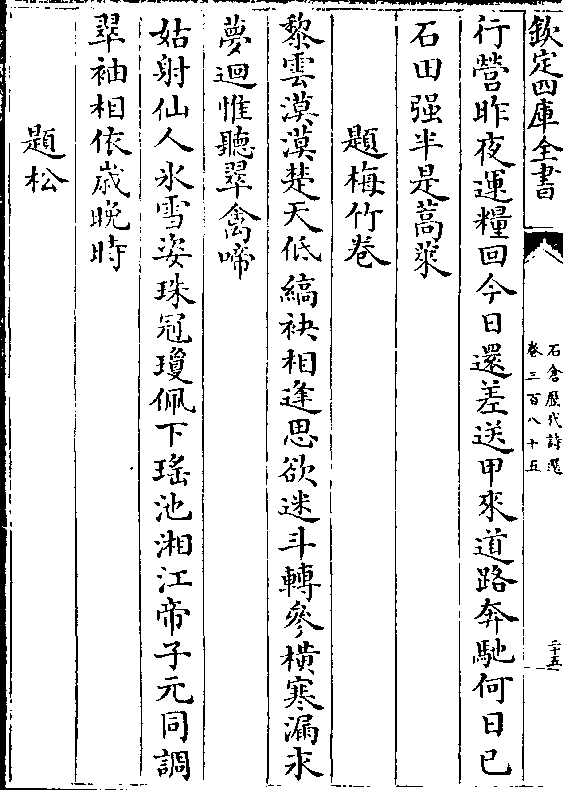 欽定四庫全書
石倉歷代詩選
卷三百八十五
二十五
行營昨夜運糧回今日還差送甲來道路奔馳何日已
石田强半是蒿萊
題梅竹卷
黎雲漠漠楚天低縞袂相逢思欲迷斗轉參橫寒漏永
夢迴惟聽翠禽啼
姑射仙人氷雪姿珠冠瓊佩下瑤池湘江帝子元同調
翠袖相依歲晚時
題松